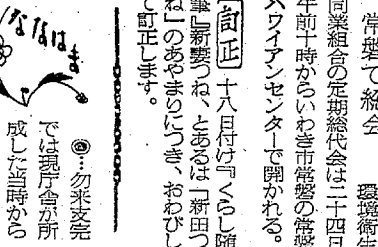 常磐で総会
環境衛生
同業組合の定期総代会は二十四日
午前十時からいわき市常磐の常磐
ハワイアンセンターで開かれる。
【訂正】十八日付け『くらし随
筆』新妻つね、とあるは「新田つ
ね」のあやまりにつき、おわびし
て訂正します。
ななはま
◎…勿来支完
では現庁舎が所
成した当時から